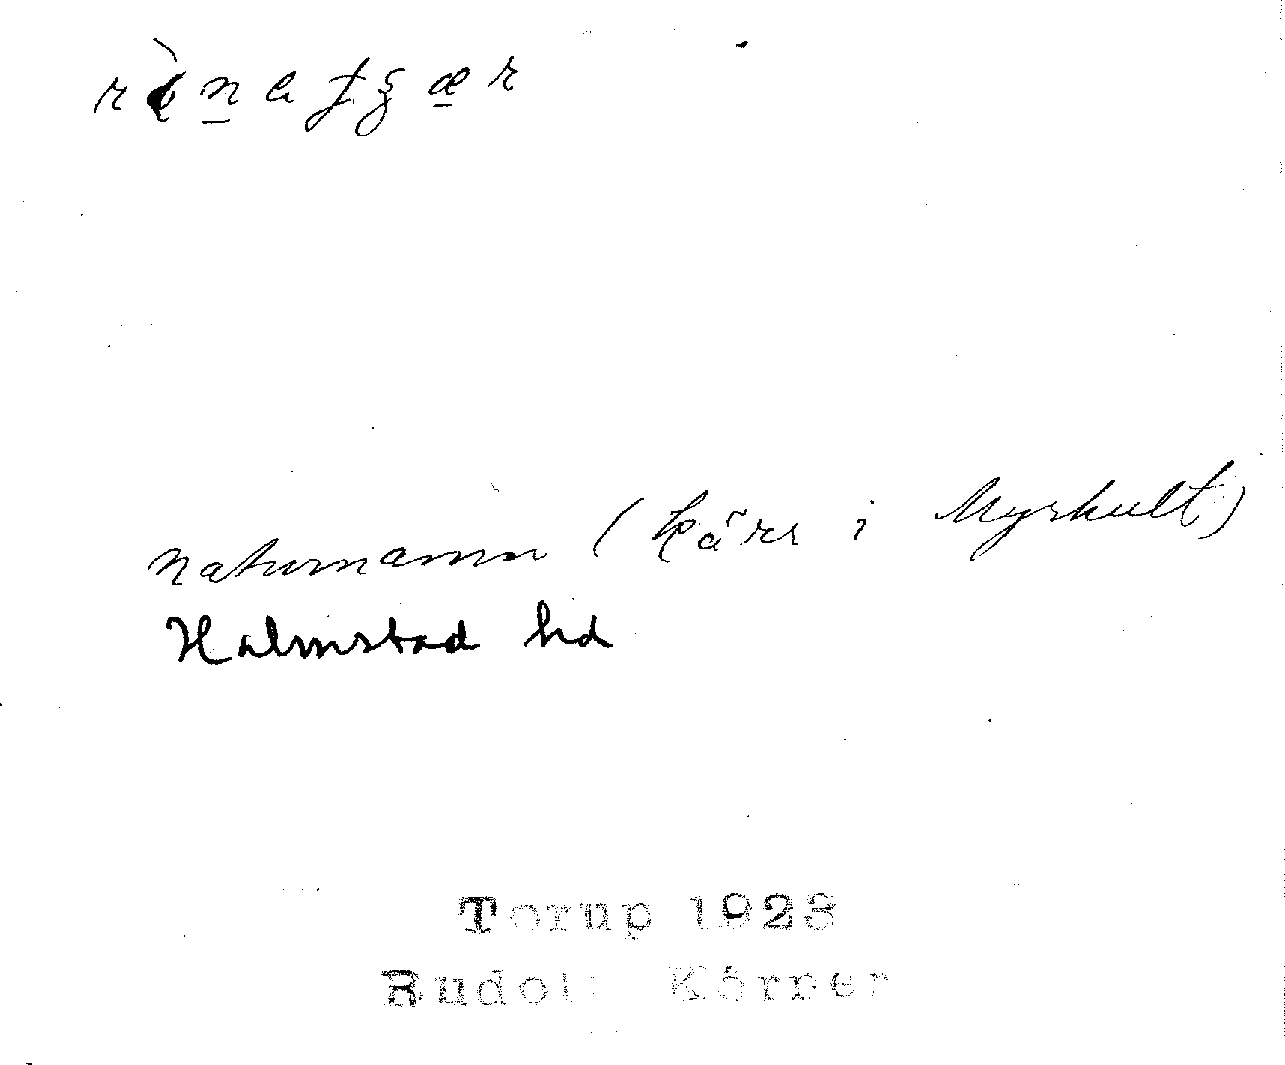 naturnamn (kärr i Myrkult)
Halmstad hd
Torup 1928
Rudolf Körner